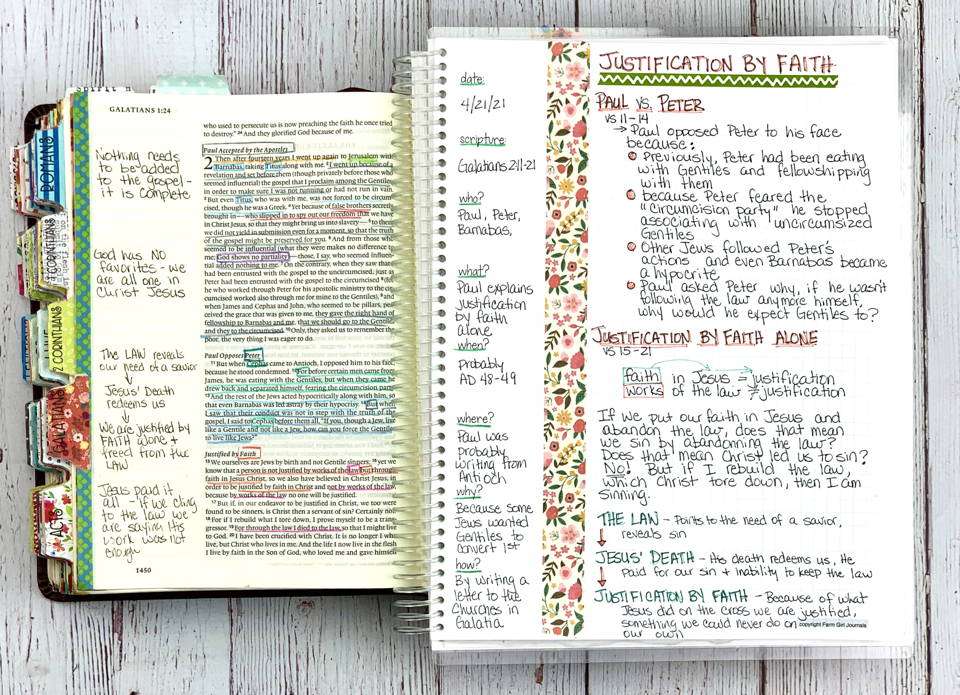 GALATIANS 1:24
Nothing needs
to be added
to the gospel -
it is complete
God has NO
favorites - we
are all one in
Christ Jesus
The LAW reveals
our need of a savior
↓
Jesus' Death
redeems us
↓
We are justified by
FAITH alone +
freed from the
LAW
Jesus paid it
all - if we cling
to the law we
are saying His
work was not
enough
1450
who used to persecute us is now preaching the faith he once tried
to destroy." 24 And they glorified God because of me.
Paul Accepted by the Apostles
2 Then after fourteen years I went up again to Jerusalem with
Barnabas, taking Titus along with me. 2 I went up because of a
revelation and set before them (though privately before those who
seemed influential) the gospel that I proclaim among the Gentiles,
in order to make sure I was not running or had not run in vain.
3 But even Titus, who was with me, was not forced to be circum-
cised, though he was a Greek. 4 Yet because of false brothers secretly
brought in—who slipped in to spy out our freedom that we have
in Christ Jesus, so that they might bring us into slavery— 5 to them
we did not yield in submission even for a moment, so that the truth
of the gospel might be preserved for you. 6 And from those who
seemed to be influential (what they were makes no difference to
me; God shows no partiality)—those, I say, who seemed influen-
tial added nothing to me. 7 On the contrary, when they saw that I
had been entrusted with the gospel to the uncircumcised, just as
Peter had been entrusted with the gospel to the circumcised 8 (for
he who worked through Peter for his apostolic ministry to the cir-
cumcised worked also through me for mine to the Gentiles), 9 and
when James and Cephas and John, who seemed to be pillars, per-
ceived the grace that was given to me, they gave the right hand of
fellowship to Barnabas and me, that we should go to the Gentiles
and they to the circumcised. 10 Only, they asked us to remember the
poor, the very thing I was eager to do.
Paul Opposes Peter
11 But when Cephas came to Antioch, I opposed him to his face,
because he stood condemned. 12 For before certain men came from
James, he was eating with the Gentiles; but when they came he
drew back and separated himself, fearing the circumcision party.
13 And the rest of the Jews acted hypocritically along with him, so
that even Barnabas was led astray by their hypocrisy. 14 But when
I saw that their conduct was not in step with the truth of the
gospel, I said to Cephas before them all, "If you, though a Jew, live
like a Gentile and not like a Jew, how can you force the Gentiles
to live like Jews?"
Justified by Faith
15 We ourselves are Jews by birth and not Gentile sinners; 16 yet we
know that a person is not justified by works of the law but through
faith in Jesus Christ, so we also have believed in Christ Jesus, in
order to be justified by faith in Christ and not by works of the law,
because by works of the law no one will be justified.
17 But if, in our endeavor to be justified in Christ, we too were
found to be sinners, is Christ then a servant of sin? Certainly not!
18 For if I rebuild what I tore down, I prove myself to be a trans-
gressor. 19 For through the law I died to the law, so that I might live
to God. 20 I have been crucified with Christ. It is no longer I who
live, but Christ who lives in me. And the life I now live in the flesh
I live by faith in the Son of God, who loved me and gave himself
ROMANS
1 CORINTHIANS
2 CORINTHIANS
GALATIANS
ACTS
date:
4/21/21
scripture:
Galatians 2:11-21
who?
Paul, Peter,
Barnabas,
what?
Paul explains
justification
by faith
alone
when?
Probably
AD 48-49
where?
Paul was
probably
writing from
Antioch
why?
Because some
Jews wanted
Gentiles to
convert 1st
how?
By writing a
letter to the
Churches in
Galatia
JUSTIFICATION BY FAITH
PAUL VS. PETER
VS 11-14
→ Paul opposed Peter to his face
because:
Previously, Peter had been eating
with Gentiles and fellowshipping
with them
because Peter feared the
"circumcision party" he stopped
associating with "uncircumsized
Gentiles
Other Jews followed Peter's
actions and even Barnabas became
a hypocrite
Paul asked Peter why, if he wasn't
following the law anymore himself,
why would he expect Gentiles to?
JUSTIFICATION BY FAITH ALONE
VS 15-21
faith in Jesus = justification
works of the law ≠ justification
If we put our faith in Jesus and
abandon the law, does that mean
we sin by abandonning the law?
Does that mean Christ led us to sin?
No! But if I rebuild the law,
which Christ tore down, then I am
sinning.
THE LAW - Points to the need of a savior,
reveals sin
JESUS' DEATH - His death redeems us, He
paid for our sin + inability to keep the law
JUSTIFICATION BY FAITH - Because of what
Jesus did on the cross we are justified,
something we could never do on
our own
copyright Farm Girl Journals